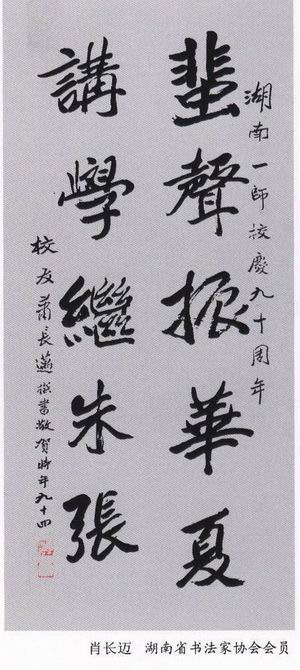 湖南一師校慶九十周年
蜚聲振華夏
講學繼朱張
校友蕭長邁撰書敬賀時年九十四
肖长迈 湖南省书法家协会会员